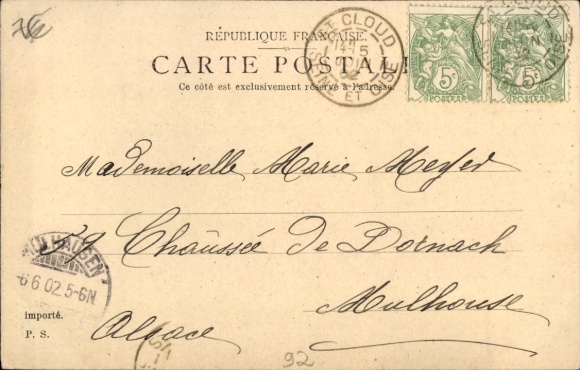 RÉPUBLIQUE FRANÇAISE
CARTE POSTALE
Ce côté est exclusivement réservé à l'adresse
ST CLOUD
SEINE ET OISE
5c 5c
POSTES POSTES
Mademoiselle Marie Meyer
29 Chaussée de Dornach
Mulhouse
Alsace
MÜLHAUSEN
6 6 02 5-6N
importé.
P. S.
92